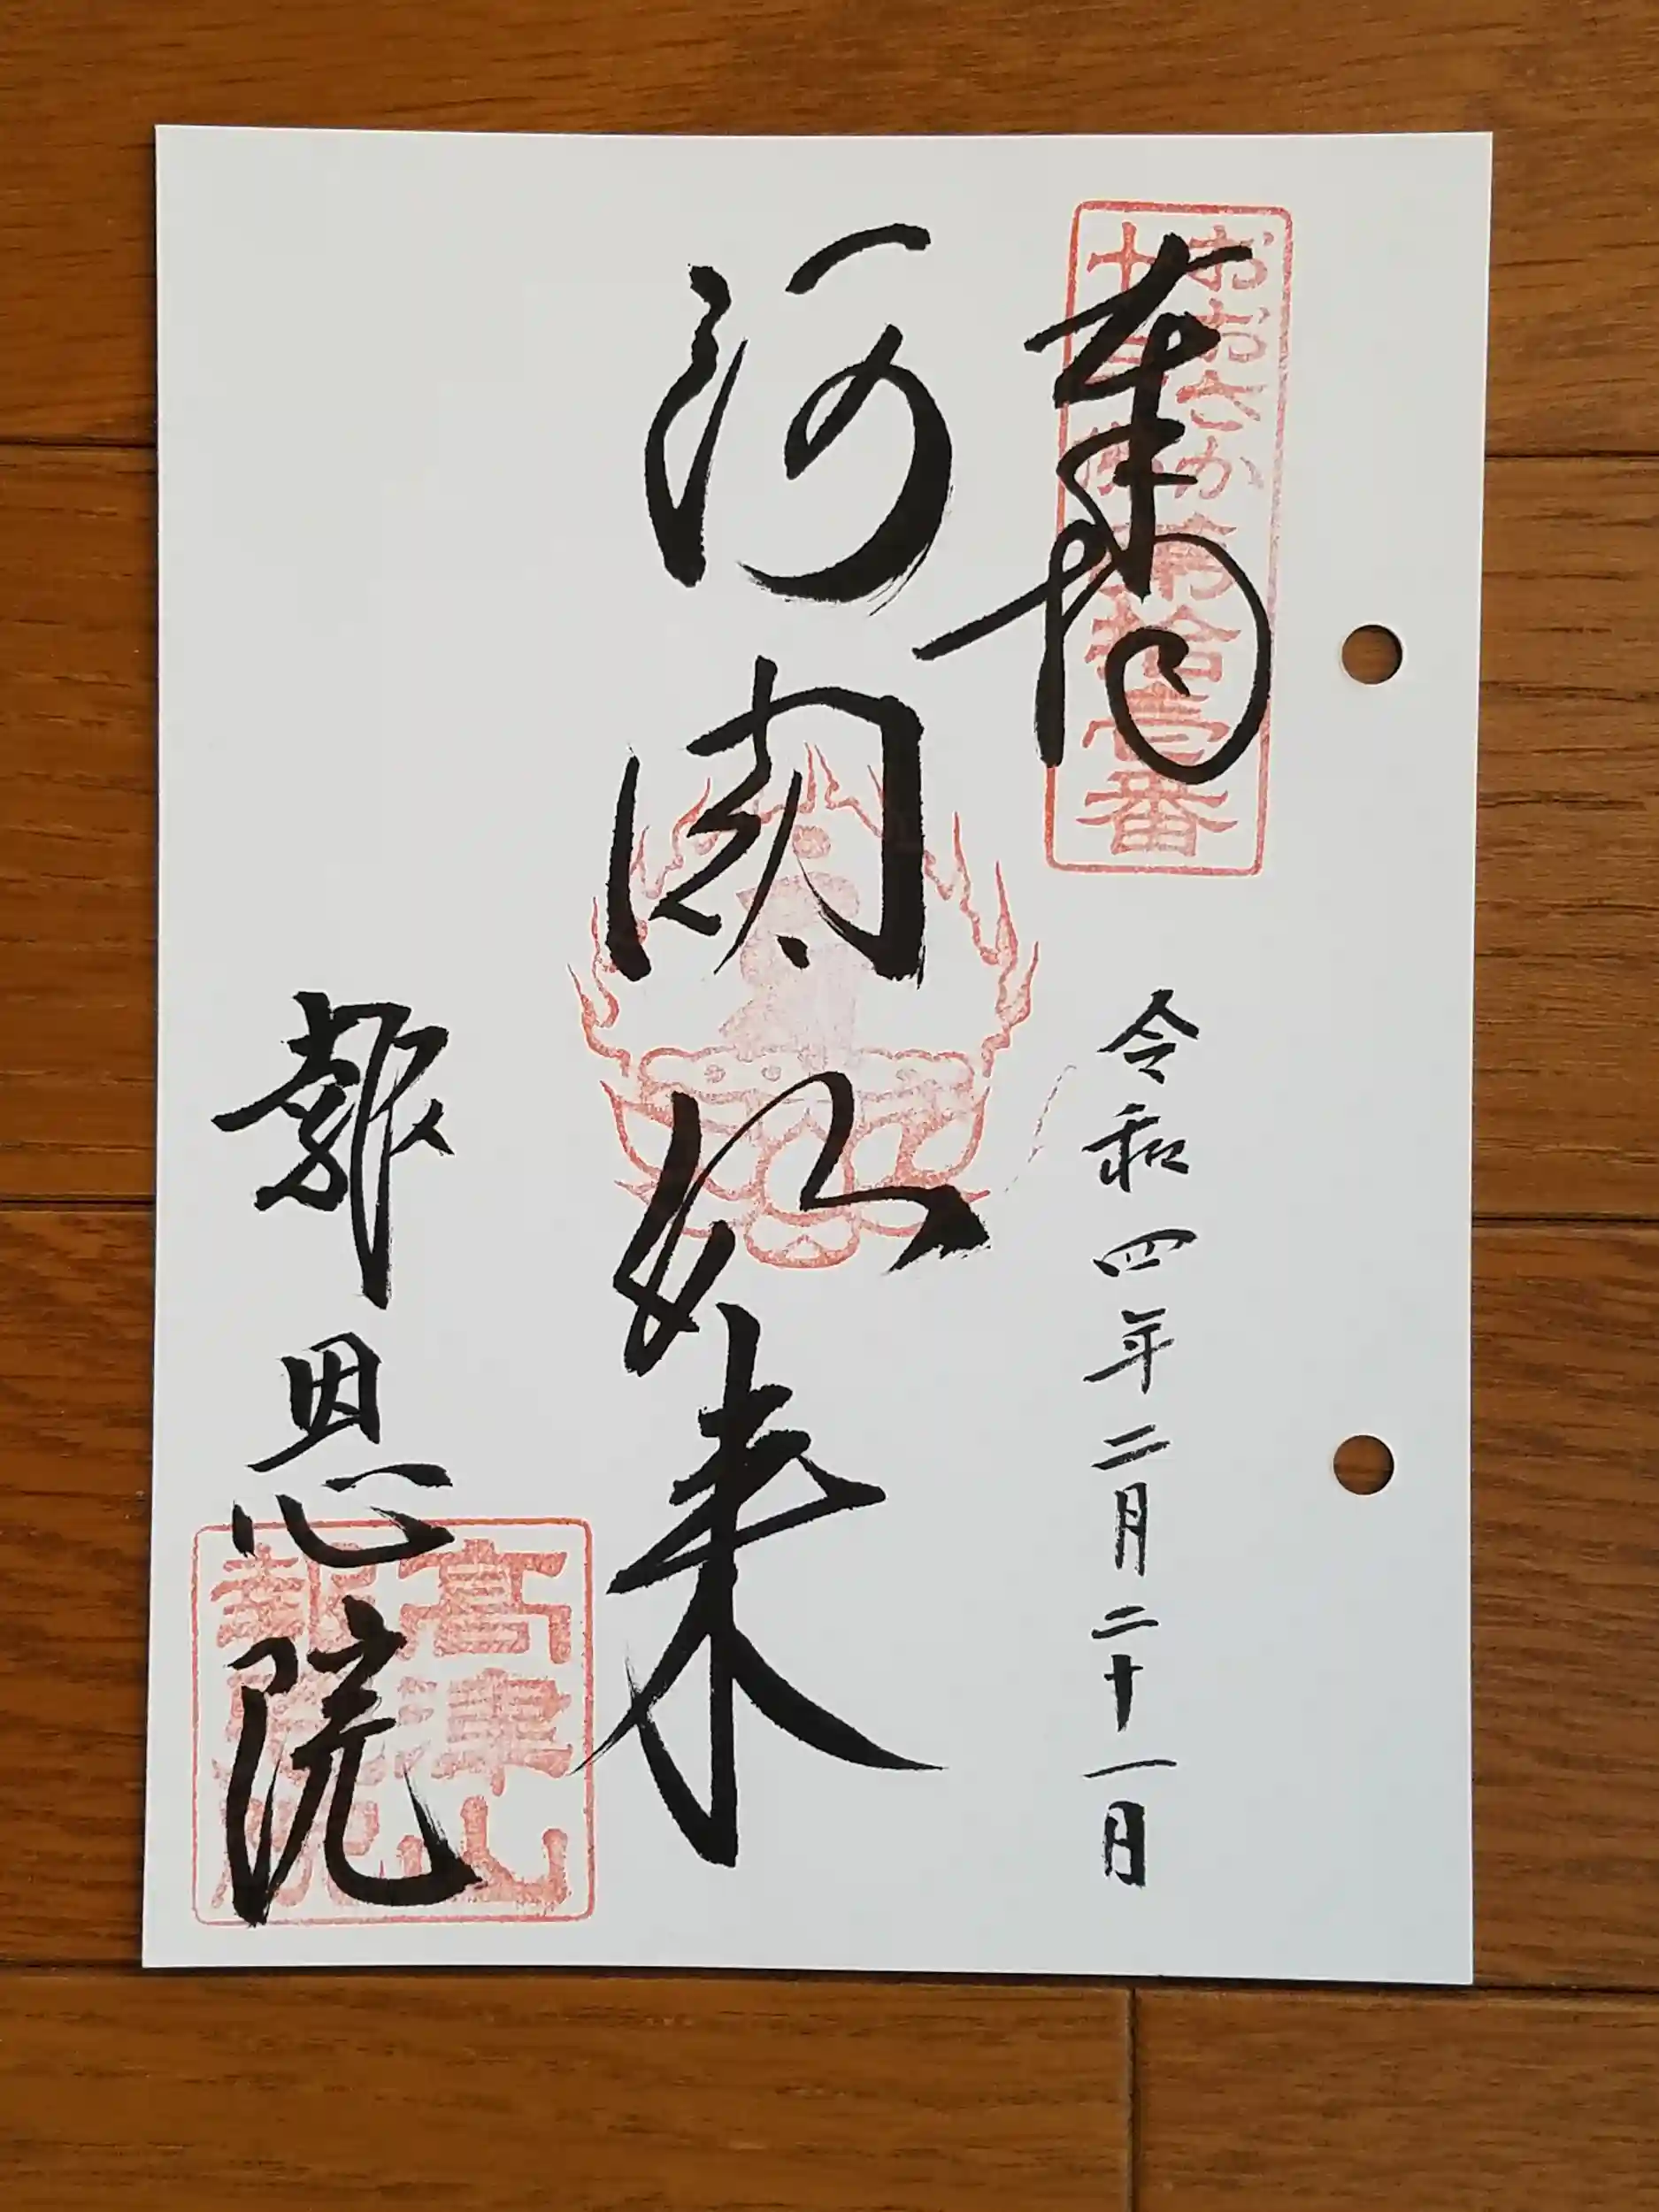 奉拝
おおさか
十三佛
第拾壱番
令和四年二月二十一日
阿閦如来
報恩院
高津山
報恩院